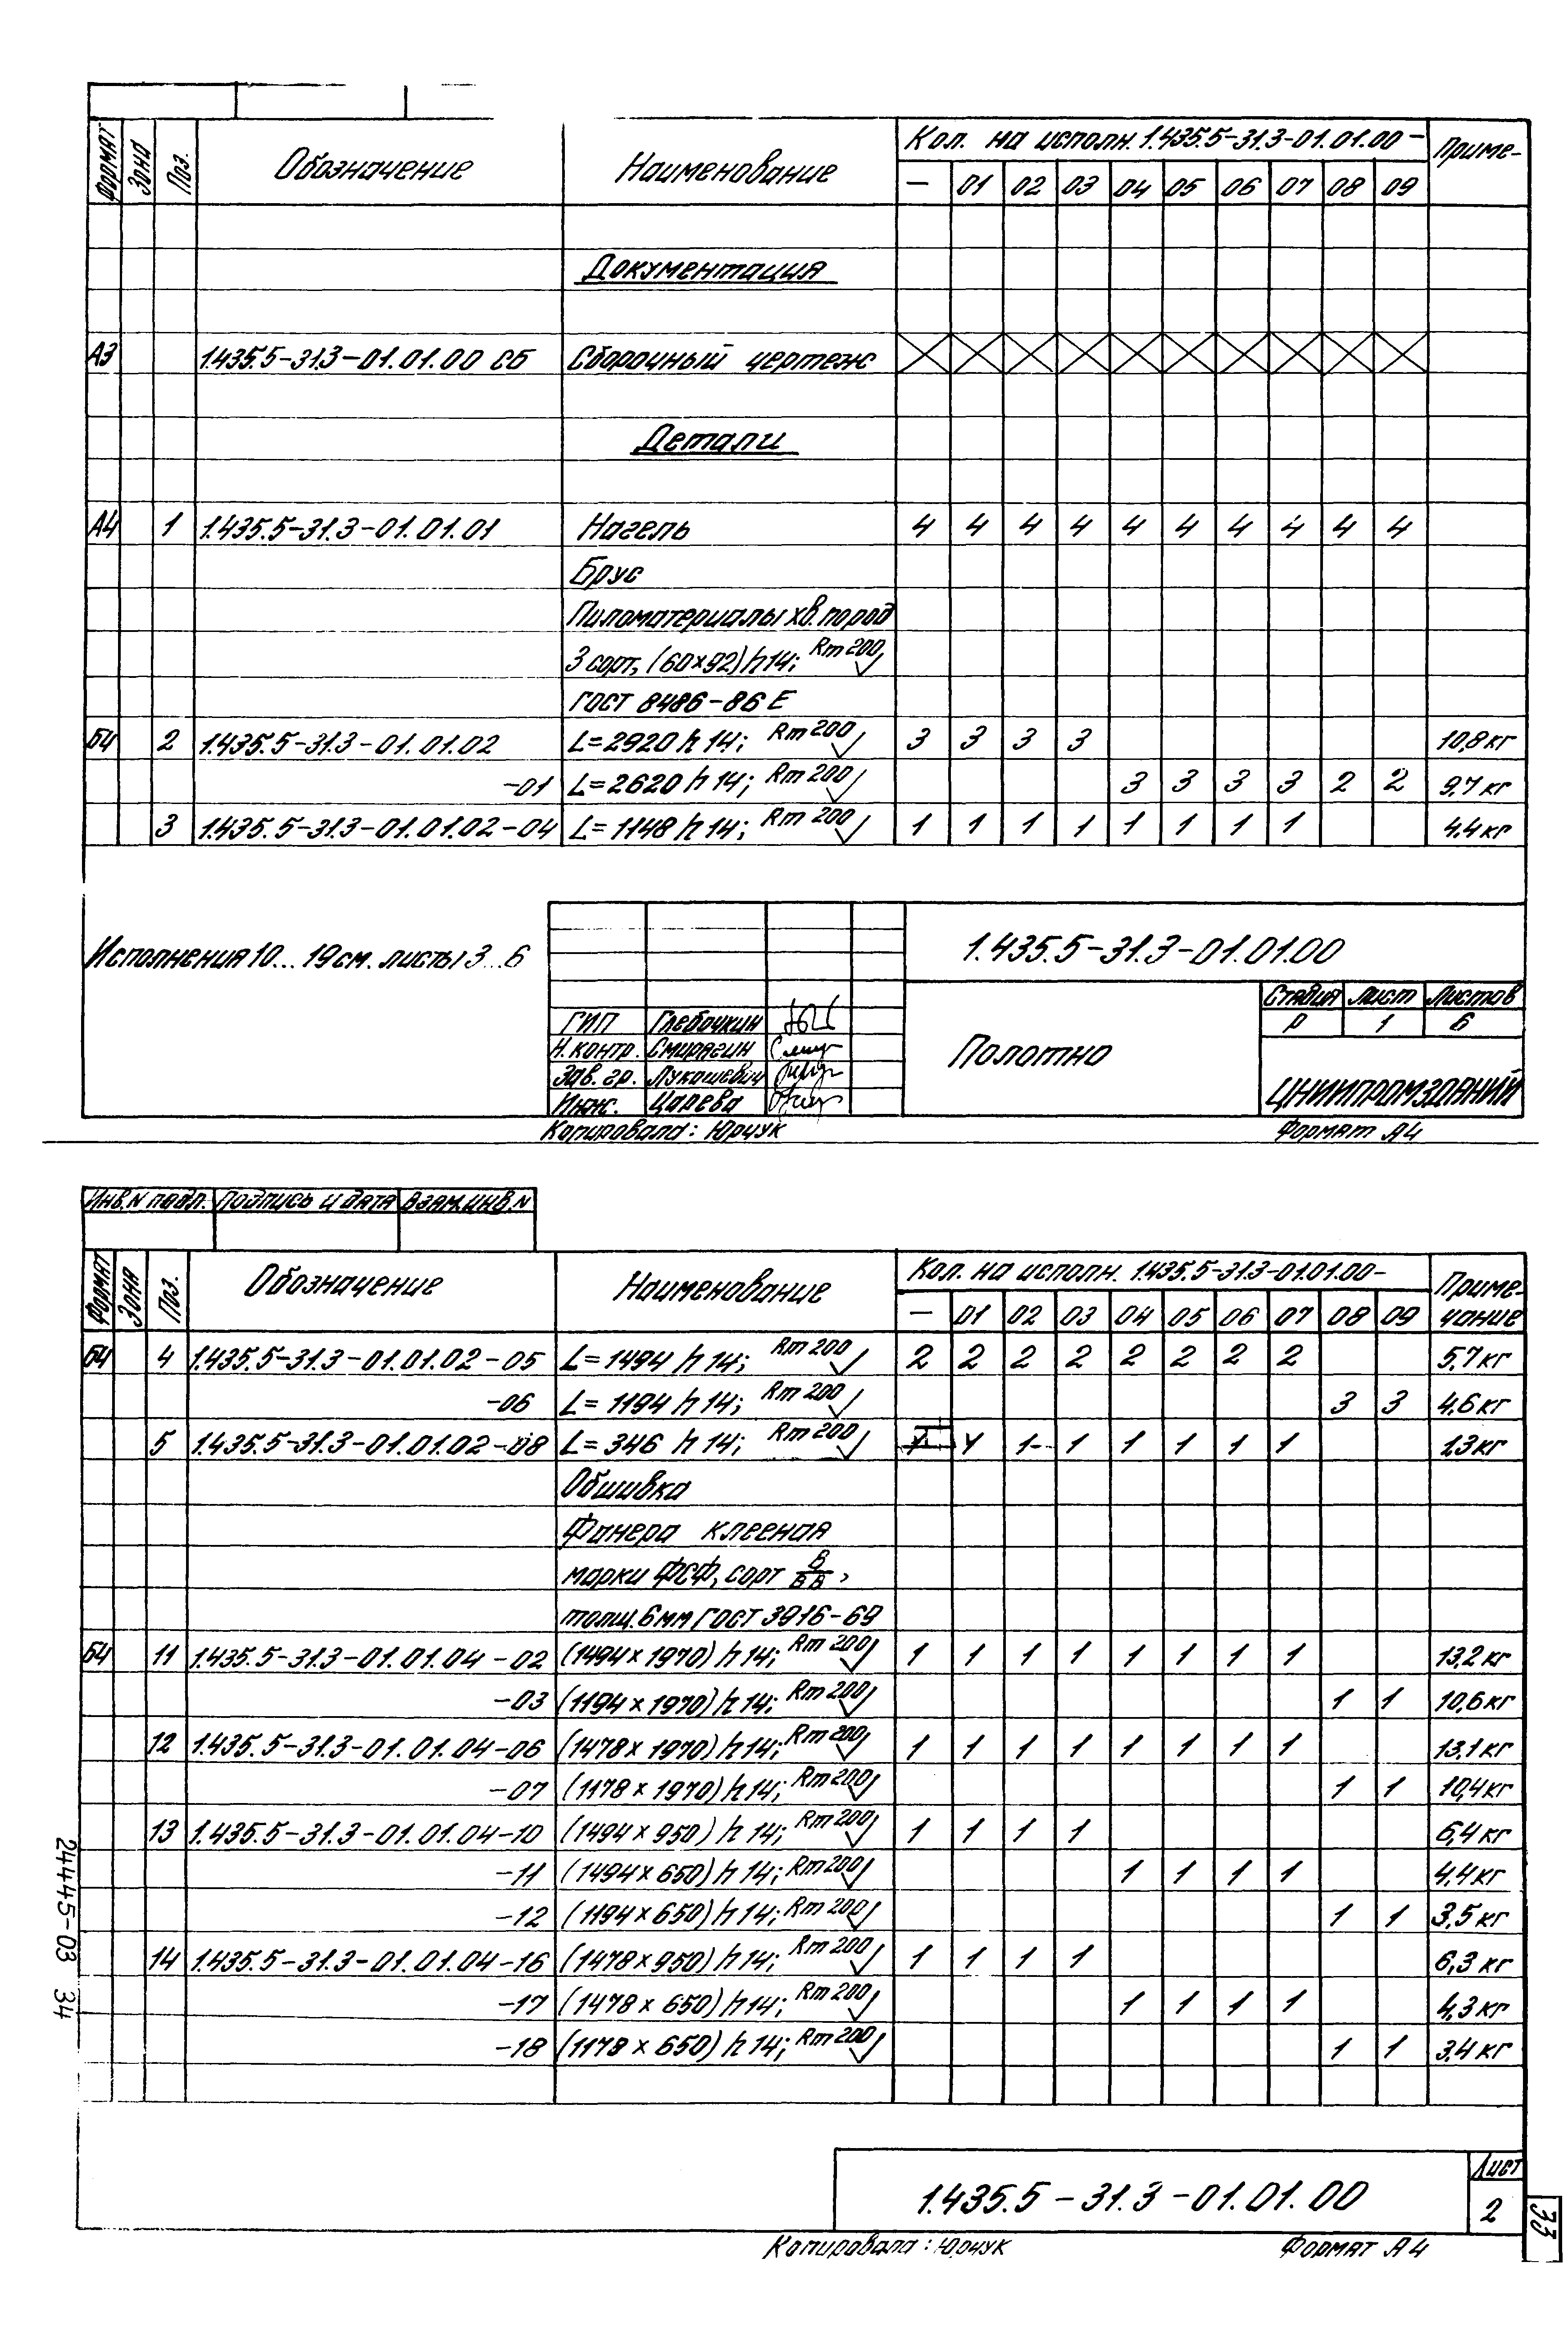 Формат Зона Поз. Обозначение Наименование Кол. на исполн. 1.435.5-31.3-01.01.00- Приме-
— 01 02 03 04 05 06 07 08 09
Документация
А3 1.435.5-31.3-01.01.00 СБ Сборочный чертеж
Детали
А4 1 1.435.5-31.3-01.01.01 Нагель 4 4 4 4 4 4 4 4 4 4
Брус
Пиломатериалы хв. пород
3 сорт, (60×92) h14; Rm 200
ГОСТ 8486-86 Е
БЧ 2 1.435.5-31.3-01.01.02 L=2920 h 14; Rm 200 3 3 3 3 10,8 кг
-01 L=2620 h 14; Rm 200 3 3 3 3 2 2 9,7 кг
3 1.435.5-31.3-01.01.02-04 L=1148 h 14; Rm 200 1 1 1 1 1 1 1 1 4,4 кг
Исполнения 10...19 см. листы 3...6
1.435.5-31.3-01.01.00
Стадия Лист Листов
Р 1 6
ГИП Глебочкин
Н. контр. Смирягин
Зав. гр. Лукашевич
Инж. Царева
Полотно
ЦНИИПРОМЗДАНИЙ
Копировала: Юрчук Формат А4
Инв. N подл. Подпись и дата Взам. инв. N
Формат Зона Поз. Обозначение Наименование Кол. на исполн. 1.435.5-31.3-01.01.00- Приме-
чание
— 01 02 03 04 05 06 07 08 09
БЧ 4 1.435.5-31.3-01.01.02-05 L=1494 h 14; Rm 200 2 2 2 2 2 2 2 2 5,7 кг
-06 L=1194 h 14; Rm 200 3 3 4,6 кг
5 1.435.5-31.3-01.01.02-08 L=346 h 14; Rm 200 1 1 1 1 1 1 1 1,3 кг
Обшивка
Фанера клееная
марки ФСФ, сорт В/ВВ,
толщ. 6 мм ГОСТ 3916-69
БЧ 11 1.435.5-31.3-01.01.04-02 (1494×1970) h 14; Rm 200 1 1 1 1 1 1 1 1 13,2 кг
-03 (1194×1970) h 14; Rm 200 1 1 10,6 кг
12 1.435.5-31.3-01.01.04-06 (1478×1970) h 14; Rm 200 1 1 1 1 1 1 1 1 13,1 кг
-07 (1178×1970) h 14; Rm 200 1 1 10,4 кг
13 1.435.5-31.3-01.01.04-10 (1494×950) h 14; Rm 200 1 1 1 1 6,4 кг
-11 (1494×650) h 14; Rm 200 1 1 1 1 4,4 кг
-12 (1194×650) h 14; Rm 200 1 1 3,5 кг
14 1.435.5-31.3-01.01.04-16 (1478×950) h 14; Rm 200 1 1 1 1 6,3 кг
-17 (1478×650) h 14; Rm 200 1 1 1 1 4,3 кг
-18 (1178×650) h 14; Rm 200 1 1 3,4 кг
24445-03 34
1.435.5-31.3-01.01.00
Лист
2
33
Копировала: Юрчук Формат А4